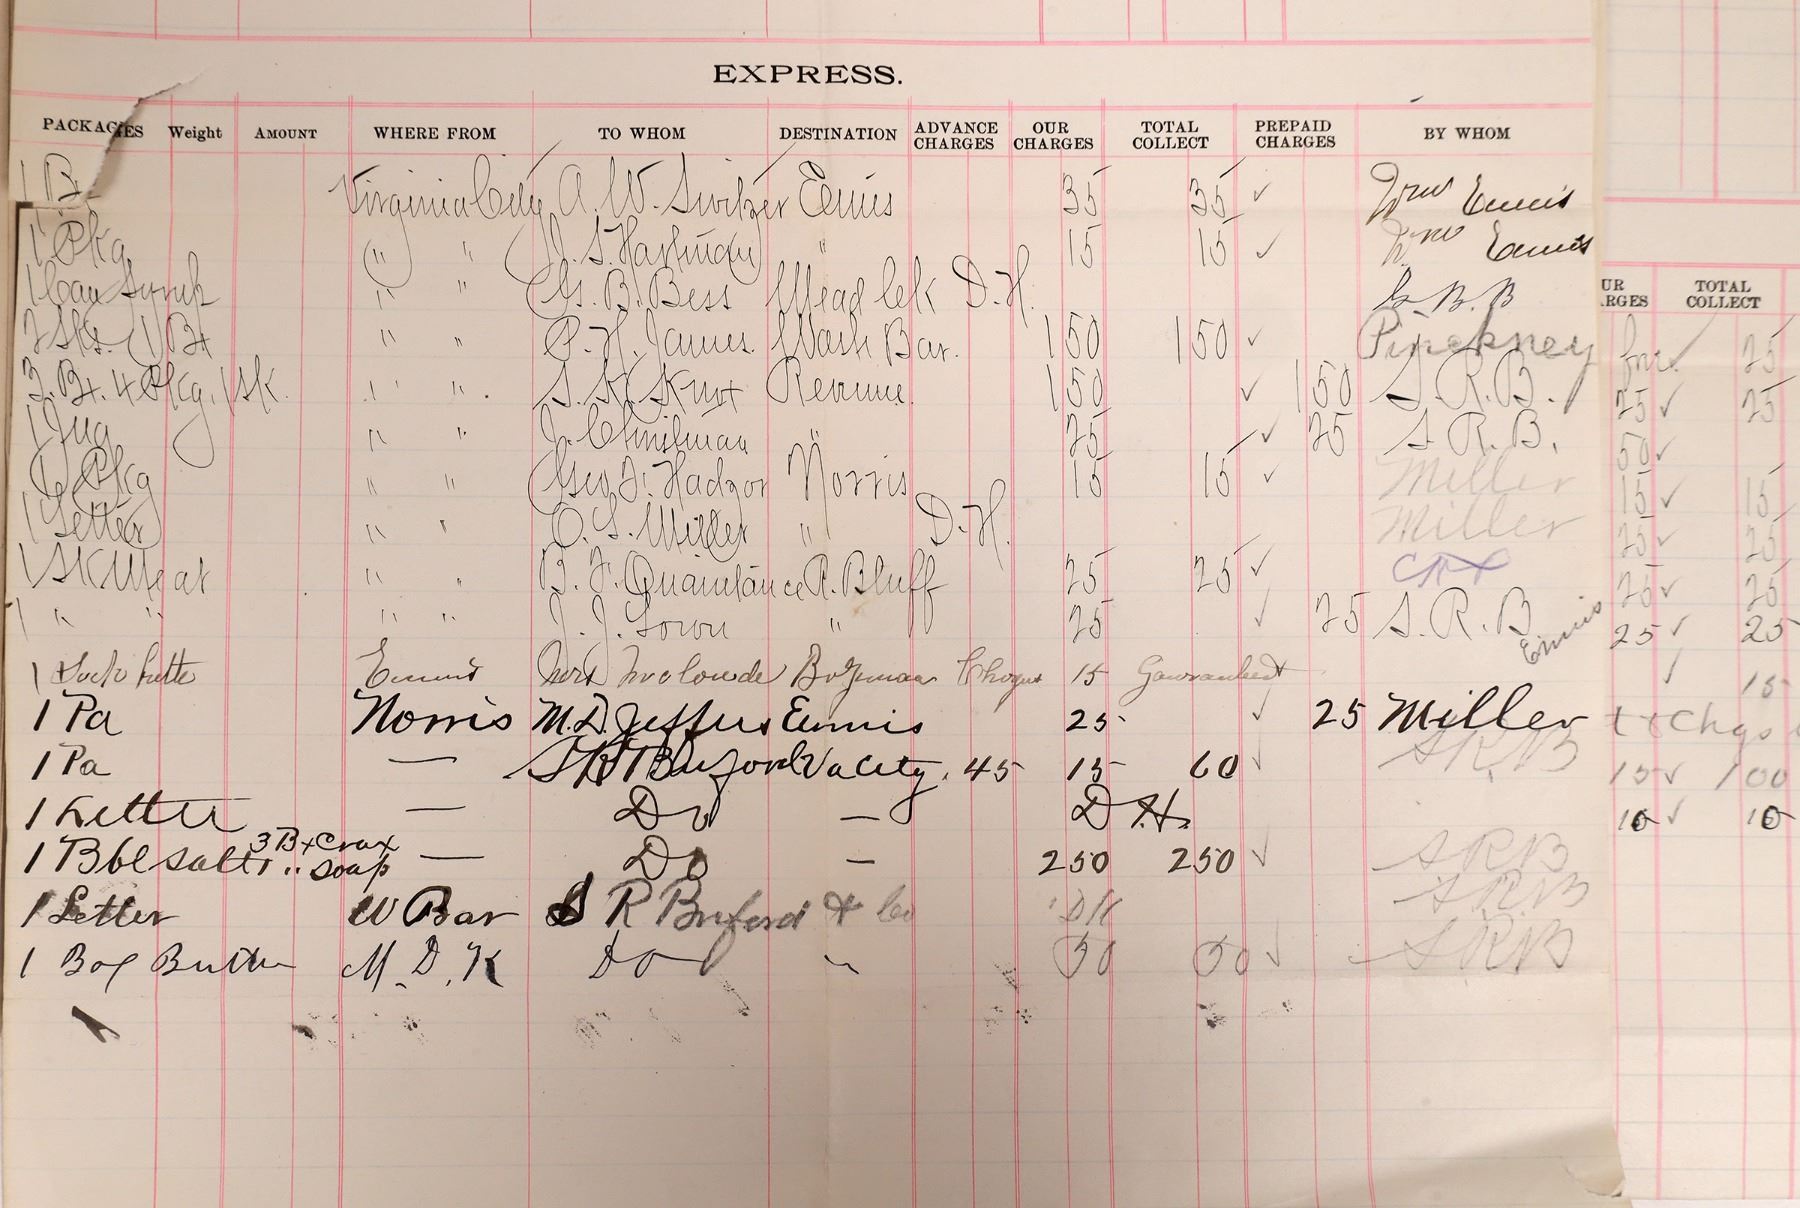 EXPRESS.
PACKAGES Weight AMOUNT WHERE FROM TO WHOM DESTINATION ADVANCE CHARGES OUR CHARGES TOTAL COLLECT PREPAID CHARGES BY WHOM
1 B Virginia City A. W. Switzer Ennis 35 35 ✓ Wm Ennis
1 Pkg " " J. S. " 15 15 ✓ Wm Ennis
1 Can Syrup " " G. B. Bess Mead Crk D.H. G.B.B
2 Sks. 1 Bx " " P. H. James. Wash Bar. 150 150 ✓ Pinckney
3. Bx. 4 Pkg. 1 sk. " " S. K. Knox Revenue. 150 ✓ 150 S.R.B.
1 Jug " " J. " 25 ✓ 25 S.R.B.
1 Pkg " " Geo. F. Norris 15 15 ✓ Miller
1 Letter " " O. S. Miller " D.H. Miller
1 SK Meat " " B. F. Quaintance R. Bluff 25 25 ✓
1 " " " " J. J. " 25 ✓ 25 S.R.B Ennis
1 Ennis Mrs Bozeman 15
1 Pa Norris M.D. Jeffers Ennis 25 ✓ 25 Miller
1 Pa — S R Buford Va City. 45 15 60 ✓ SRB
1 Letter — Do — D.H.
1 Bbl salt 3 Bx Crax 1 " soap — Do — 250 250 ✓ SRB
1 Letter W Bar S R Buford & Co DH SRB
1 Box Butter M.D.K Do " 50 50 ✓ SRB
UR RGES TOTAL COLLECT
✓ 25
25 ✓ 25
50 ✓
15 ✓ 15
25 ✓ 25
25 ✓ 25
25 ✓ 25
✓ 15
Chgs
15 ✓ 100
10 ✓ 10